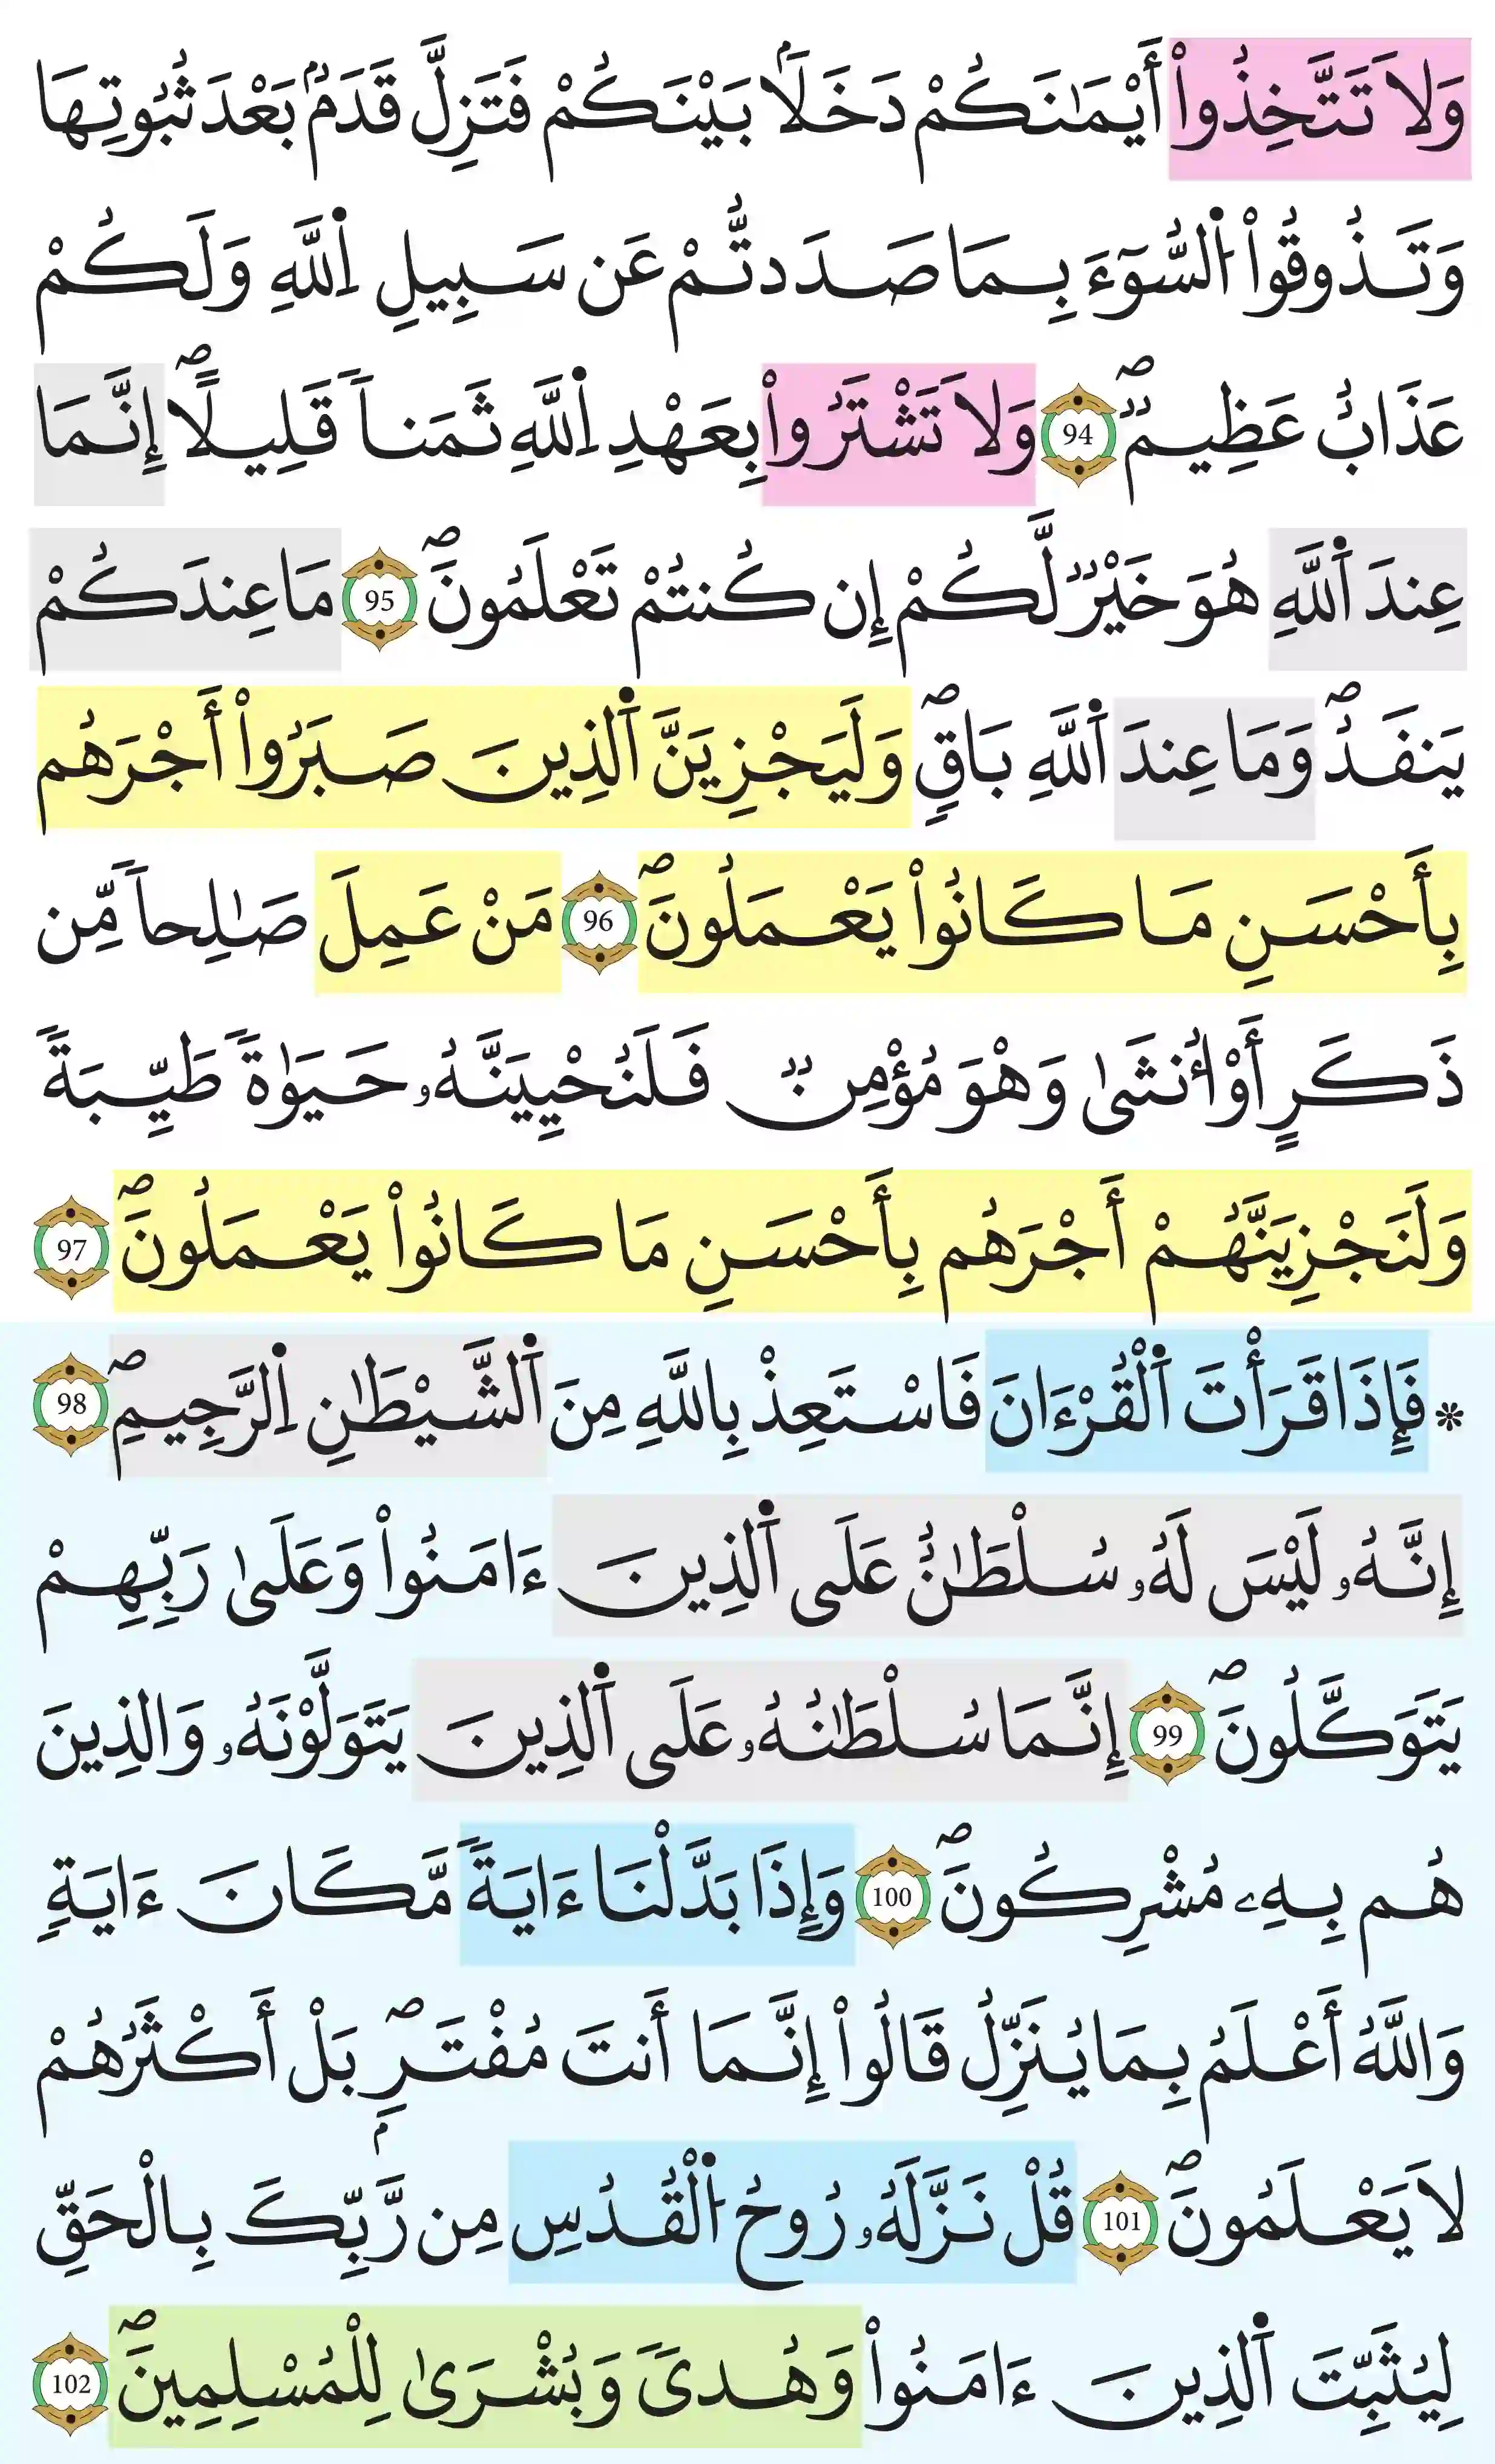 وَلَا تَتَّخِذُوٓاْ أَيْمَٰنَكُمْ دَخَلَاۢ بَيْنَكُمْ فَتَزِلَّ قَدَمُۢ بَعْدَ ثُبُوتِهَا
وَتَذُوقُواْ اُ۬لسُّوٓءَ بِمَا صَدَدتُّمْ عَن سَبِيلِ اِ۬للَّهِ وَلَكُمْ
عَذَابٌ عَظِيمٞۖ 94 وَلَا تَشْتَرُواْ بِعَهْدِ اِ۬للَّهِ ثَمَناٗ قَلِيلًاۖ إِنَّمَا
عِندَ اَ۬للَّهِ هُوَ خَيْرٞ لَّكُمْ إِن كُنتُمْ تَعْلَمُونَۖ 95 مَا عِندَكُمْ
يَنفَدُۖ وَمَا عِندَ اَ۬للَّهِ بَاقٖ وَلَيَجْزِيَنَّ اَ۬لذِينَ صَبَرُوٓاْ أَجْرَهُم
بِأَحْسَنِ مَا كَانُواْ يَعْمَلُونَۖ 96 مَنْ عَمِلَ صَٰلِحاٗ مِّن
ذَكَرٍ أَوْ أُنثَىٰ وَهْوَ مُؤْمِنٞ فَلَنُحْيِيَنَّهُۥ حَيَوٰةٗ طَيِّبَةٗ
وَلَنَجْزِيَنَّهُمْ أَجْرَهُم بِأَحْسَنِ مَا كَانُواْ يَعْمَلُونَۖ 97
* فَإِذَا قَرَأْتَ اَ۬لْقُرْءَانَ فَاسْتَعِذْ بِاللَّهِ مِنَ اَ۬لشَّيْطَٰنِ اِ۬لرَّجِيمِۖ 98
إِنَّهُۥ لَيْسَ لَهُۥ سُلْطَٰنٌ عَلَى اَ۬لذِينَ ءَامَنُواْ وَعَلَىٰ رَبِّهِمْ
يَتَوَكَّلُونَۖ 99 إِنَّمَا سُلْطَٰنُهُۥ عَلَى اَ۬لذِينَ يَتَوَلَّوْنَهُۥ وَالذِينَ
هُم بِهِۦ مُشْرِكُونَۖ 100 وَإِذَا بَدَّلْنَا ءَايَةٗ مَّكَانَ ءَايَةٖ
وَاللَّهُ أَعْلَمُ بِمَا يُنَزِّلُ قَالُواْ إِنَّمَا أَنتَ مُفْتَرِۢۖ بَلْ أَكْثَرُهُمْ
لَا يَعْلَمُونَۖ 101 قُلْ نَزَّلَهُۥ رُوحُ اُ۬لْقُدُسِ مِن رَّبِّكَ بِالْحَقِّ
لِيُثَبِّتَ اَ۬لذِينَ ءَامَنُواْ وَهُدىٗ وَبُشْرَىٰ لِلْمُسْلِمِينَۖ 102